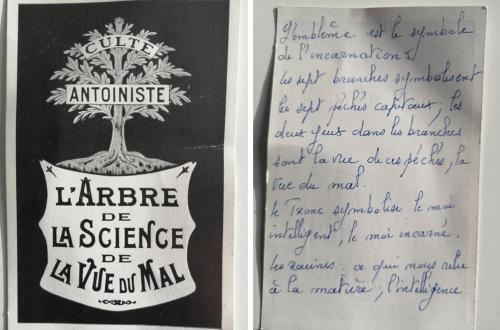 CULTE
ANTOINISTE
L'ARBRE
DE
LA SCIENCE
DE
LA VUE DU MAL
L'emblème est le symbole
de l'incarnation.
les sept branches symbolisent
les sept péchés capitaux ; les
deux yeux dans les branches
sont la vue de ces péchés, la
vue du mal.
le Tronc symbolise le moi
intelligent, le moi incarné.
les racines, ce qui nous relie
à la matière ; l'intelligence